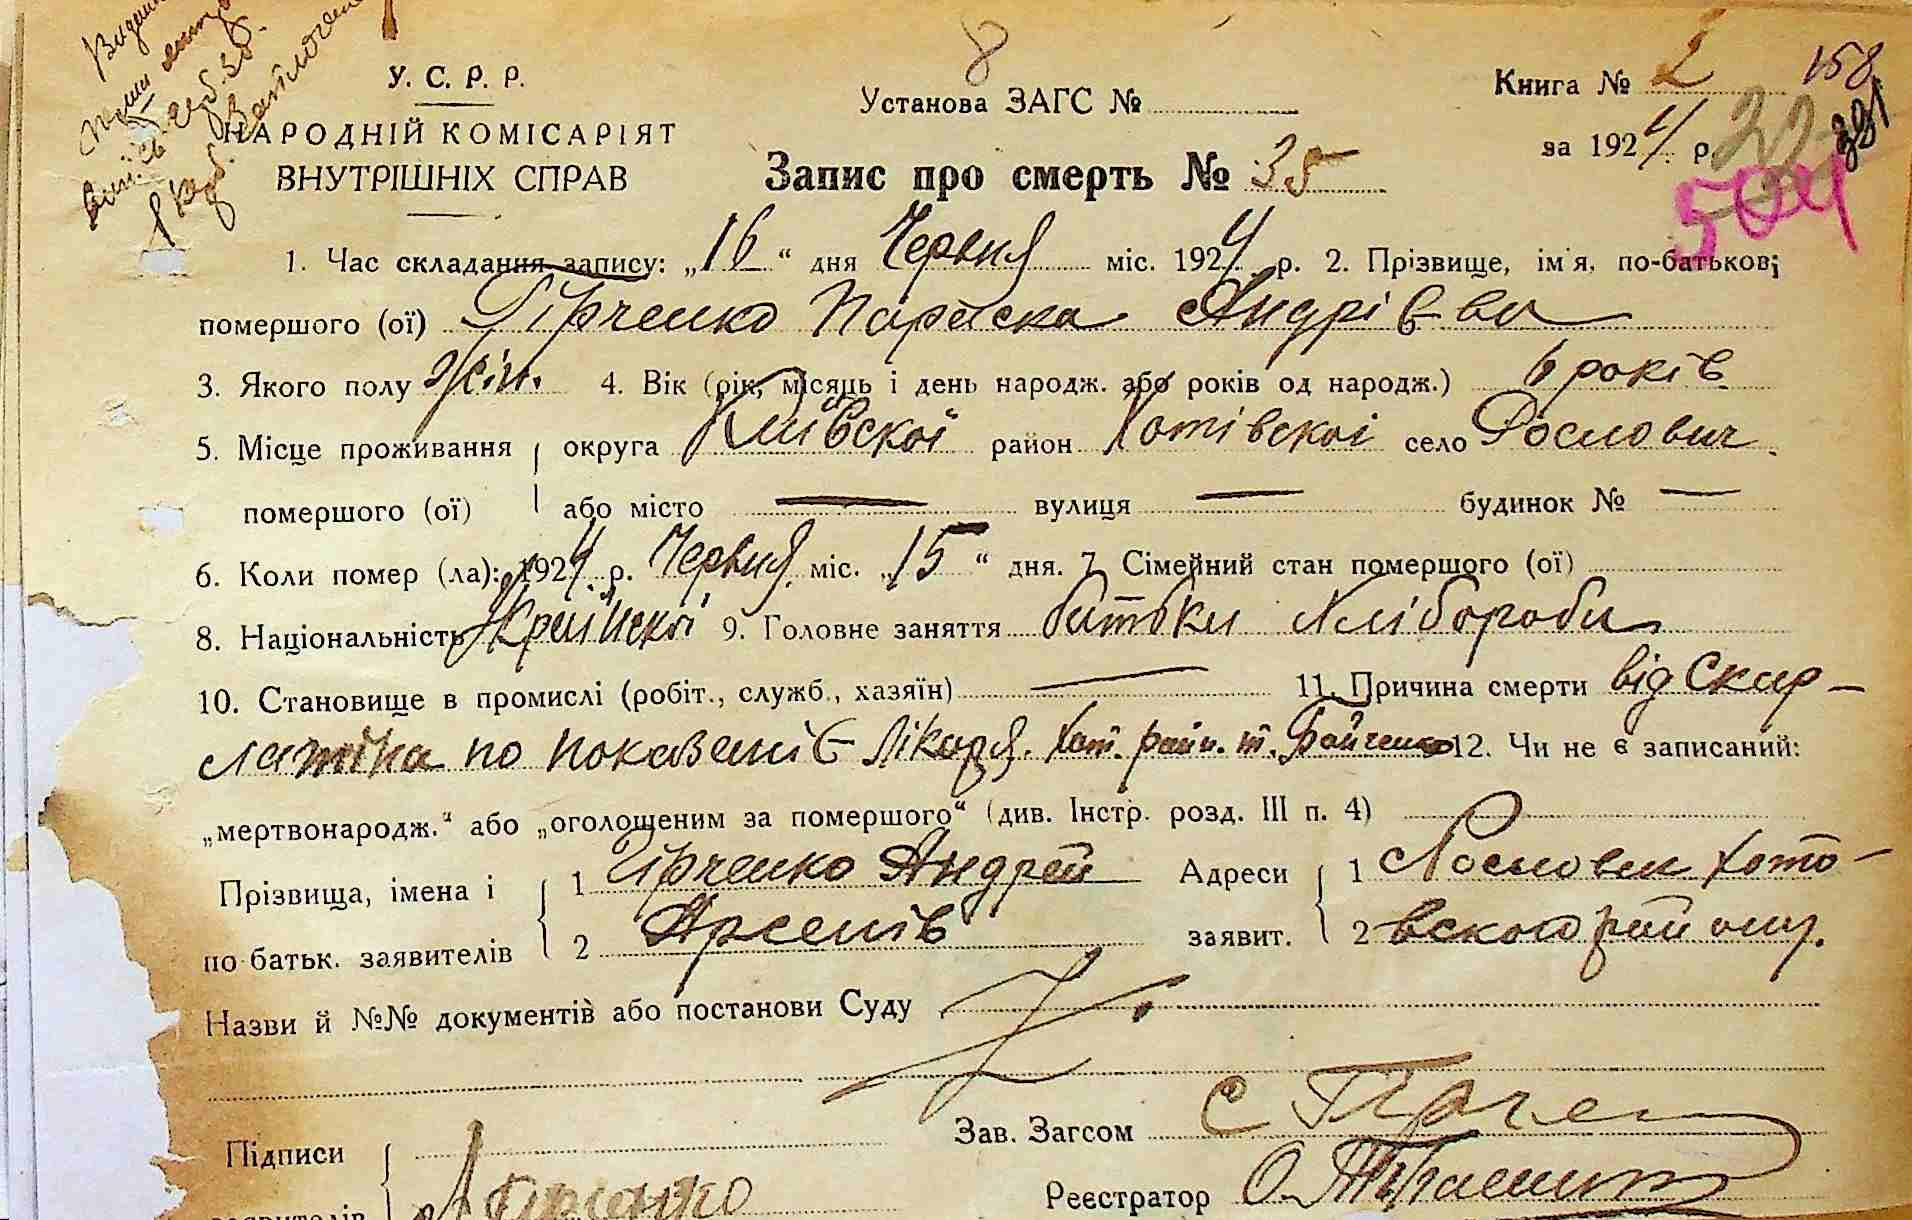 У. С. Р. Р.
НАРОДНІЙ КОМІСАРІЯТ
ВНУТРІШНІХ СПРАВ
8
Установа ЗАГС №
Запис про смерть № 35
Книга № 2 158
за 1924 р.
504
1. Час складання запису: „16“ дня Червня міс. 1924 р. 2. Прізвище, ім'я, по-батькові
помершого (ої) Гірченко Параска Андріівна
3. Якого полу жін. 4. Вік (рік, місяць і день народж. або років од народж.) 6 років
5. Місце проживання округа Київскоі район Хотівскоі село Рослович
помершого (ої) або місто — вулиця — будинок № —
6. Коли помер (ла): 1924 р. Червня міс. „15“ дня. 7. Сімейний стан помершого (ої)
8. Національність 9. Головне заняття батьки хлібороби
10. Становище в промислі (робіт., служб., хазяїн) — 11. Причина смерти від Скар-
латіна по показаніЄ лікаря. Хот. райн. т. Бойченко 12. Чи не є записаний:
„мертвонародж.“ або „оголошеним за помершого“ (див. Інстр. розд. III п. 4)
Прізвища, імена і 1 Гірченко Андрей Адреси 1 Рословек Хото-
по батьк. заявителів 2 Арсенів заявит. 2 вского району.
Назви й №№ документів або постанови Суду
Зав. Загсом С Гірчен
Підписи
Реєстратор О.
заявителів